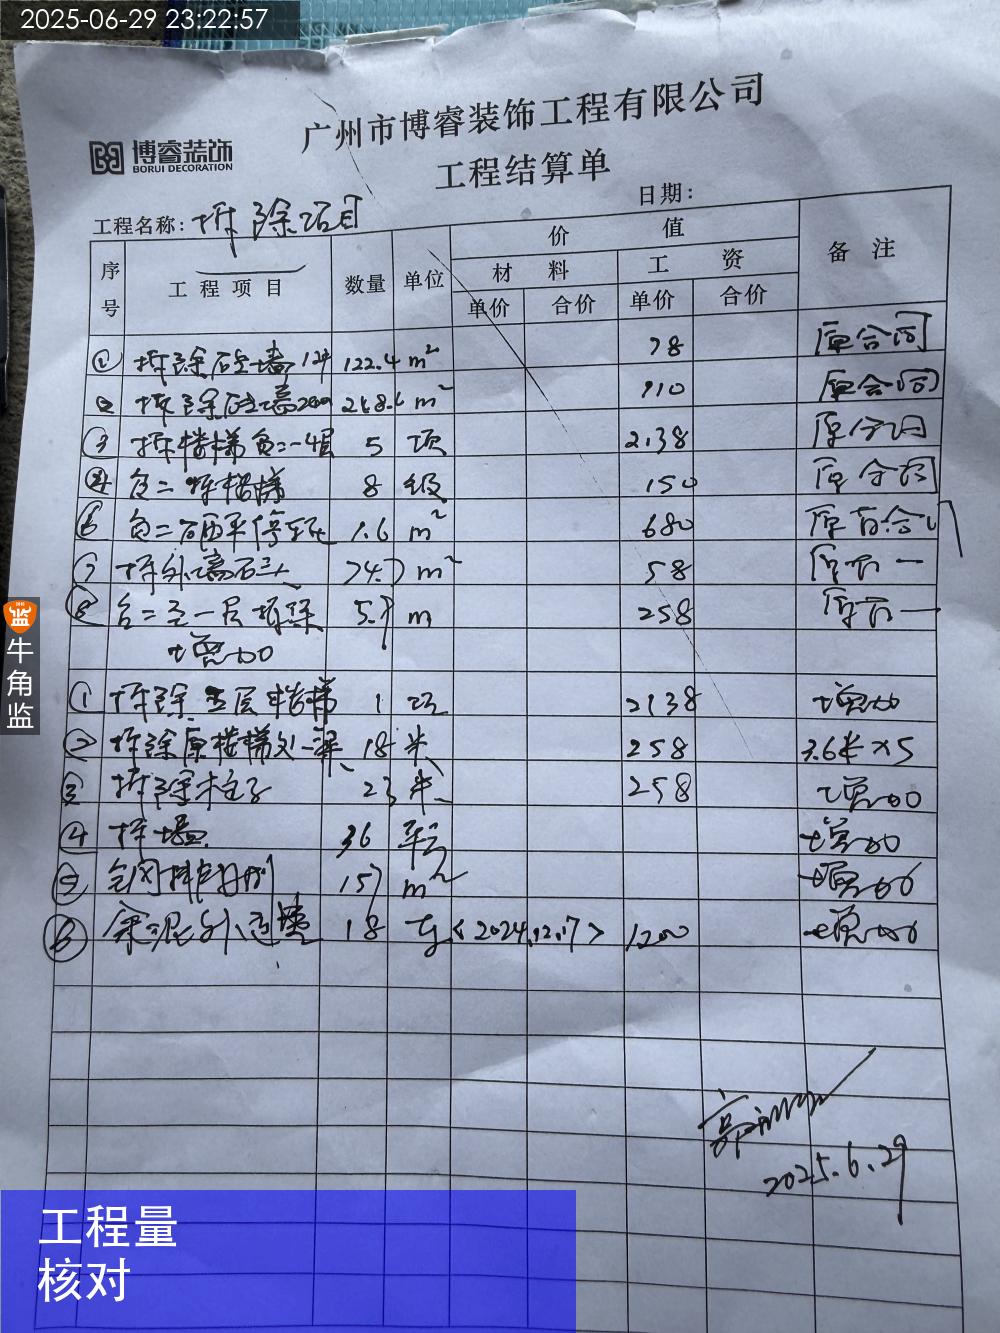 2025-06-29 23:22:57
广州市博睿装饰工程有限公司
博睿装饰
BORUI DECORATION
工程结算单
工程名称: 拆除项目
日期:
序号 工程项目 数量 单位 价值 备注
材料 工资
单价 合价 单价 合价
① 拆除砼墙 122.4 m² 78 原合同
② 拆除砼墙 m² 110 原合同
③ 拆楼梯负二一层 5 项 2138 原合同
④ 负二拆楼梯 8 级 150 原合同
⑥ 负二 1.6 m² 680
⑦ 拆外墙石头 74.7 m² 58
⑧ 负二至一层拆梁 5.7 m 258
增加
① 拆除五层楼梯 1 项 2138 增加
② 拆除原楼梯处一梁 18 米 258 3.6米×5
③ 拆除柱子 23 米 258 增加
④ 拆墙 36 平方 增加
⑤ 157 m² 增加
⑥ 余泥外运 18 车 <2024.12.17> 1200 增加
2025.6.29
牛角监
工程量
核对